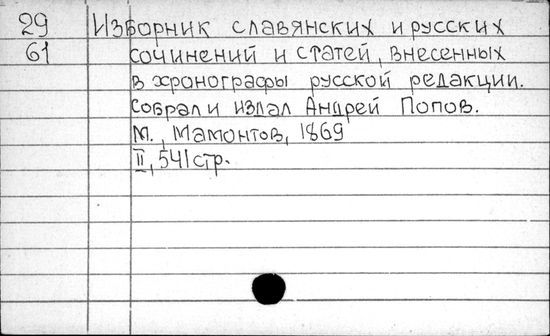 29 Изборник славянских и русских
61 сочинений и статей, внесенных
в хронографы русской редакции.
Собрал и издал Андрей Попов.
М., Мамонтов, 1869
II, 541 стр.